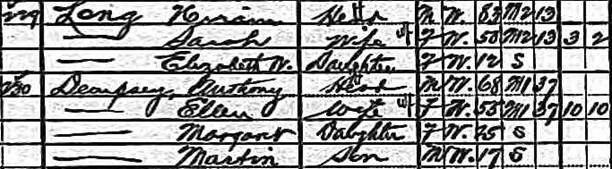 229 Long Hiram Head M W. 83 M2 13
— Sarah Wife F W. 50 M2 13 3 2
— Elizabeth W. Daughter F W. 12 S
230 Deampsey, Anthony Head M W. 68 M1 37
— Ellen Wife F W. 55 M1 37 10 10
— Margaret Daughter F W. 25 S
— Martin Son M W. 17 S